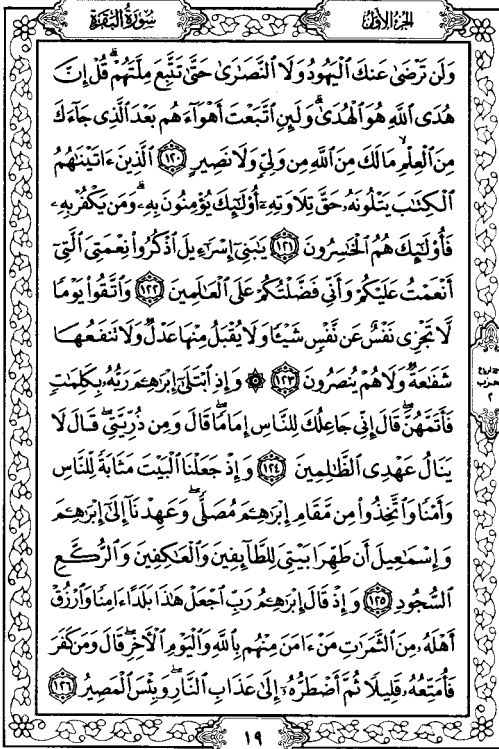 سُورَةُ البَقَرَةِ
الجُزْءُ الأَوَّلُ
وَلَن تَرْضَىٰ عَنكَ ٱلْيَهُودُ وَلَا ٱلنَّصَٰرَىٰ حَتَّىٰ تَتَّبِعَ مِلَّتَهُمْ ۗ قُلْ إِنَّ
هُدَى ٱللَّهِ هُوَ ٱلْهُدَىٰ ۗ وَلَئِنِ ٱتَّبَعْتَ أَهْوَآءَهُم بَعْدَ ٱلَّذِى جَآءَكَ
مِنَ ٱلْعِلْمِ ۙ مَا لَكَ مِنَ ٱللَّهِ مِن وَلِىٍّ وَلَا نَصِيرٍ ١٢٠ ٱلَّذِينَ ءَاتَيْنَٰهُمُ
ٱلْكِتَٰبَ يَتْلُونَهُۥ حَقَّ تِلَاوَتِهِۦٓ أُو۟لَٰٓئِكَ يُؤْمِنُونَ بِهِۦ ۗ وَمَن يَكْفُرْ بِهِۦ
فَأُو۟لَٰٓئِكَ هُمُ ٱلْخَٰسِرُونَ ١٢١ يَٰبَنِىٓ إِسْرَٰٓءِيلَ ٱذْكُرُوا۟ نِعْمَتِىَ ٱلَّتِىٓ
أَنْعَمْتُ عَلَيْكُمْ وَأَنِّى فَضَّلْتُكُمْ عَلَى ٱلْعَٰلَمِينَ ١٢٢ وَٱتَّقُوا۟ يَوْمًا
لَّا تَجْزِى نَفْسٌ عَن نَّفْسٍ شَيْـًٔا وَلَا يُقْبَلُ مِنْهَا عَدْلٌ وَلَا تَنفَعُهَا
شَفَٰعَةٌ وَلَا هُمْ يُنصَرُونَ ١٢٣ ۞ وَإِذِ ٱبْتَلَىٰٓ إِبْرَٰهِـۧمَ رَبُّهُۥ بِكَلِمَٰتٍ
فَأَتَمَّهُنَّ ۖ قَالَ إِنِّى جَاعِلُكَ لِلنَّاسِ إِمَامًا ۖ قَالَ وَمِن ذُرِّيَّتِى ۖ قَالَ لَا
يَنَالُ عَهْدِى ٱلظَّٰلِمِينَ ١٢٤ وَإِذْ جَعَلْنَا ٱلْبَيْتَ مَثَابَةً لِّلنَّاسِ
وَأَمْنًا وَٱتَّخِذُوا۟ مِن مَّقَامِ إِبْرَٰهِـۧمَ مُصَلًّى ۖ وَعَهِدْنَآ إِلَىٰٓ إِبْرَٰهِـۧمَ
وَإِسْمَٰعِيلَ أَن طَهِّرَا بَيْتِىَ لِلطَّآئِفِينَ وَٱلْعَٰكِفِينَ وَٱلرُّكَّعِ
ٱلسُّجُودِ ١٢٥ وَإِذْ قَالَ إِبْرَٰهِـۧمُ رَبِّ ٱجْعَلْ هَٰذَا بَلَدًا ءَامِنًا وَٱرْزُقْ
أَهْلَهُۥ مِنَ ٱلثَّمَرَٰتِ مَنْ ءَامَنَ مِنْهُم بِٱللَّهِ وَٱلْيَوْمِ ٱلْـَٔاخِرِ ۖ قَالَ وَمَن كَفَرَ
فَأُمَتِّعُهُۥ قَلِيلًا ثُمَّ أَضْطَرُّهُۥٓ إِلَىٰ عَذَابِ ٱلنَّارِ ۖ وَبِئْسَ ٱلْمَصِيرُ ١٢٦
حزب
٢
١٩